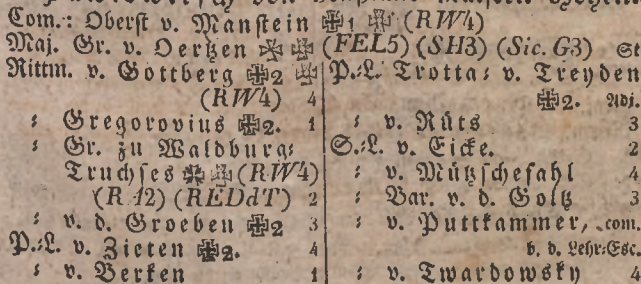 Com.: Oberſt v. Manſtein ✠1 ✠ (RW4)
Maj. Gr. v. Oertzen ✠ ✠ (FEL5) (SH3) (Sic. G3) St
Rittm. v. Gottberg ✠2 ✠
(RW4) 4
: Gregorovius ✠2. 1
: Gr. zu Waldburg:
Truchſes ✠ ✠ (RW4)
(R A2) (REDdT) 2
: v. d. Groeben ✠2 3
P.:L. v. Zieten ✠2. 4
: v. Berken 1
P.:L. Trotta: v. Treyden
✠2. Adj.
: v. Rüts 3
S.:L. v. Eicke. 2
: v. Mützſchefahl 4
: Bar. v. d. Goltz 3
: v. Puttkammer, com.
b. d. Lehr:Esc.
: v. Twardowsky 4